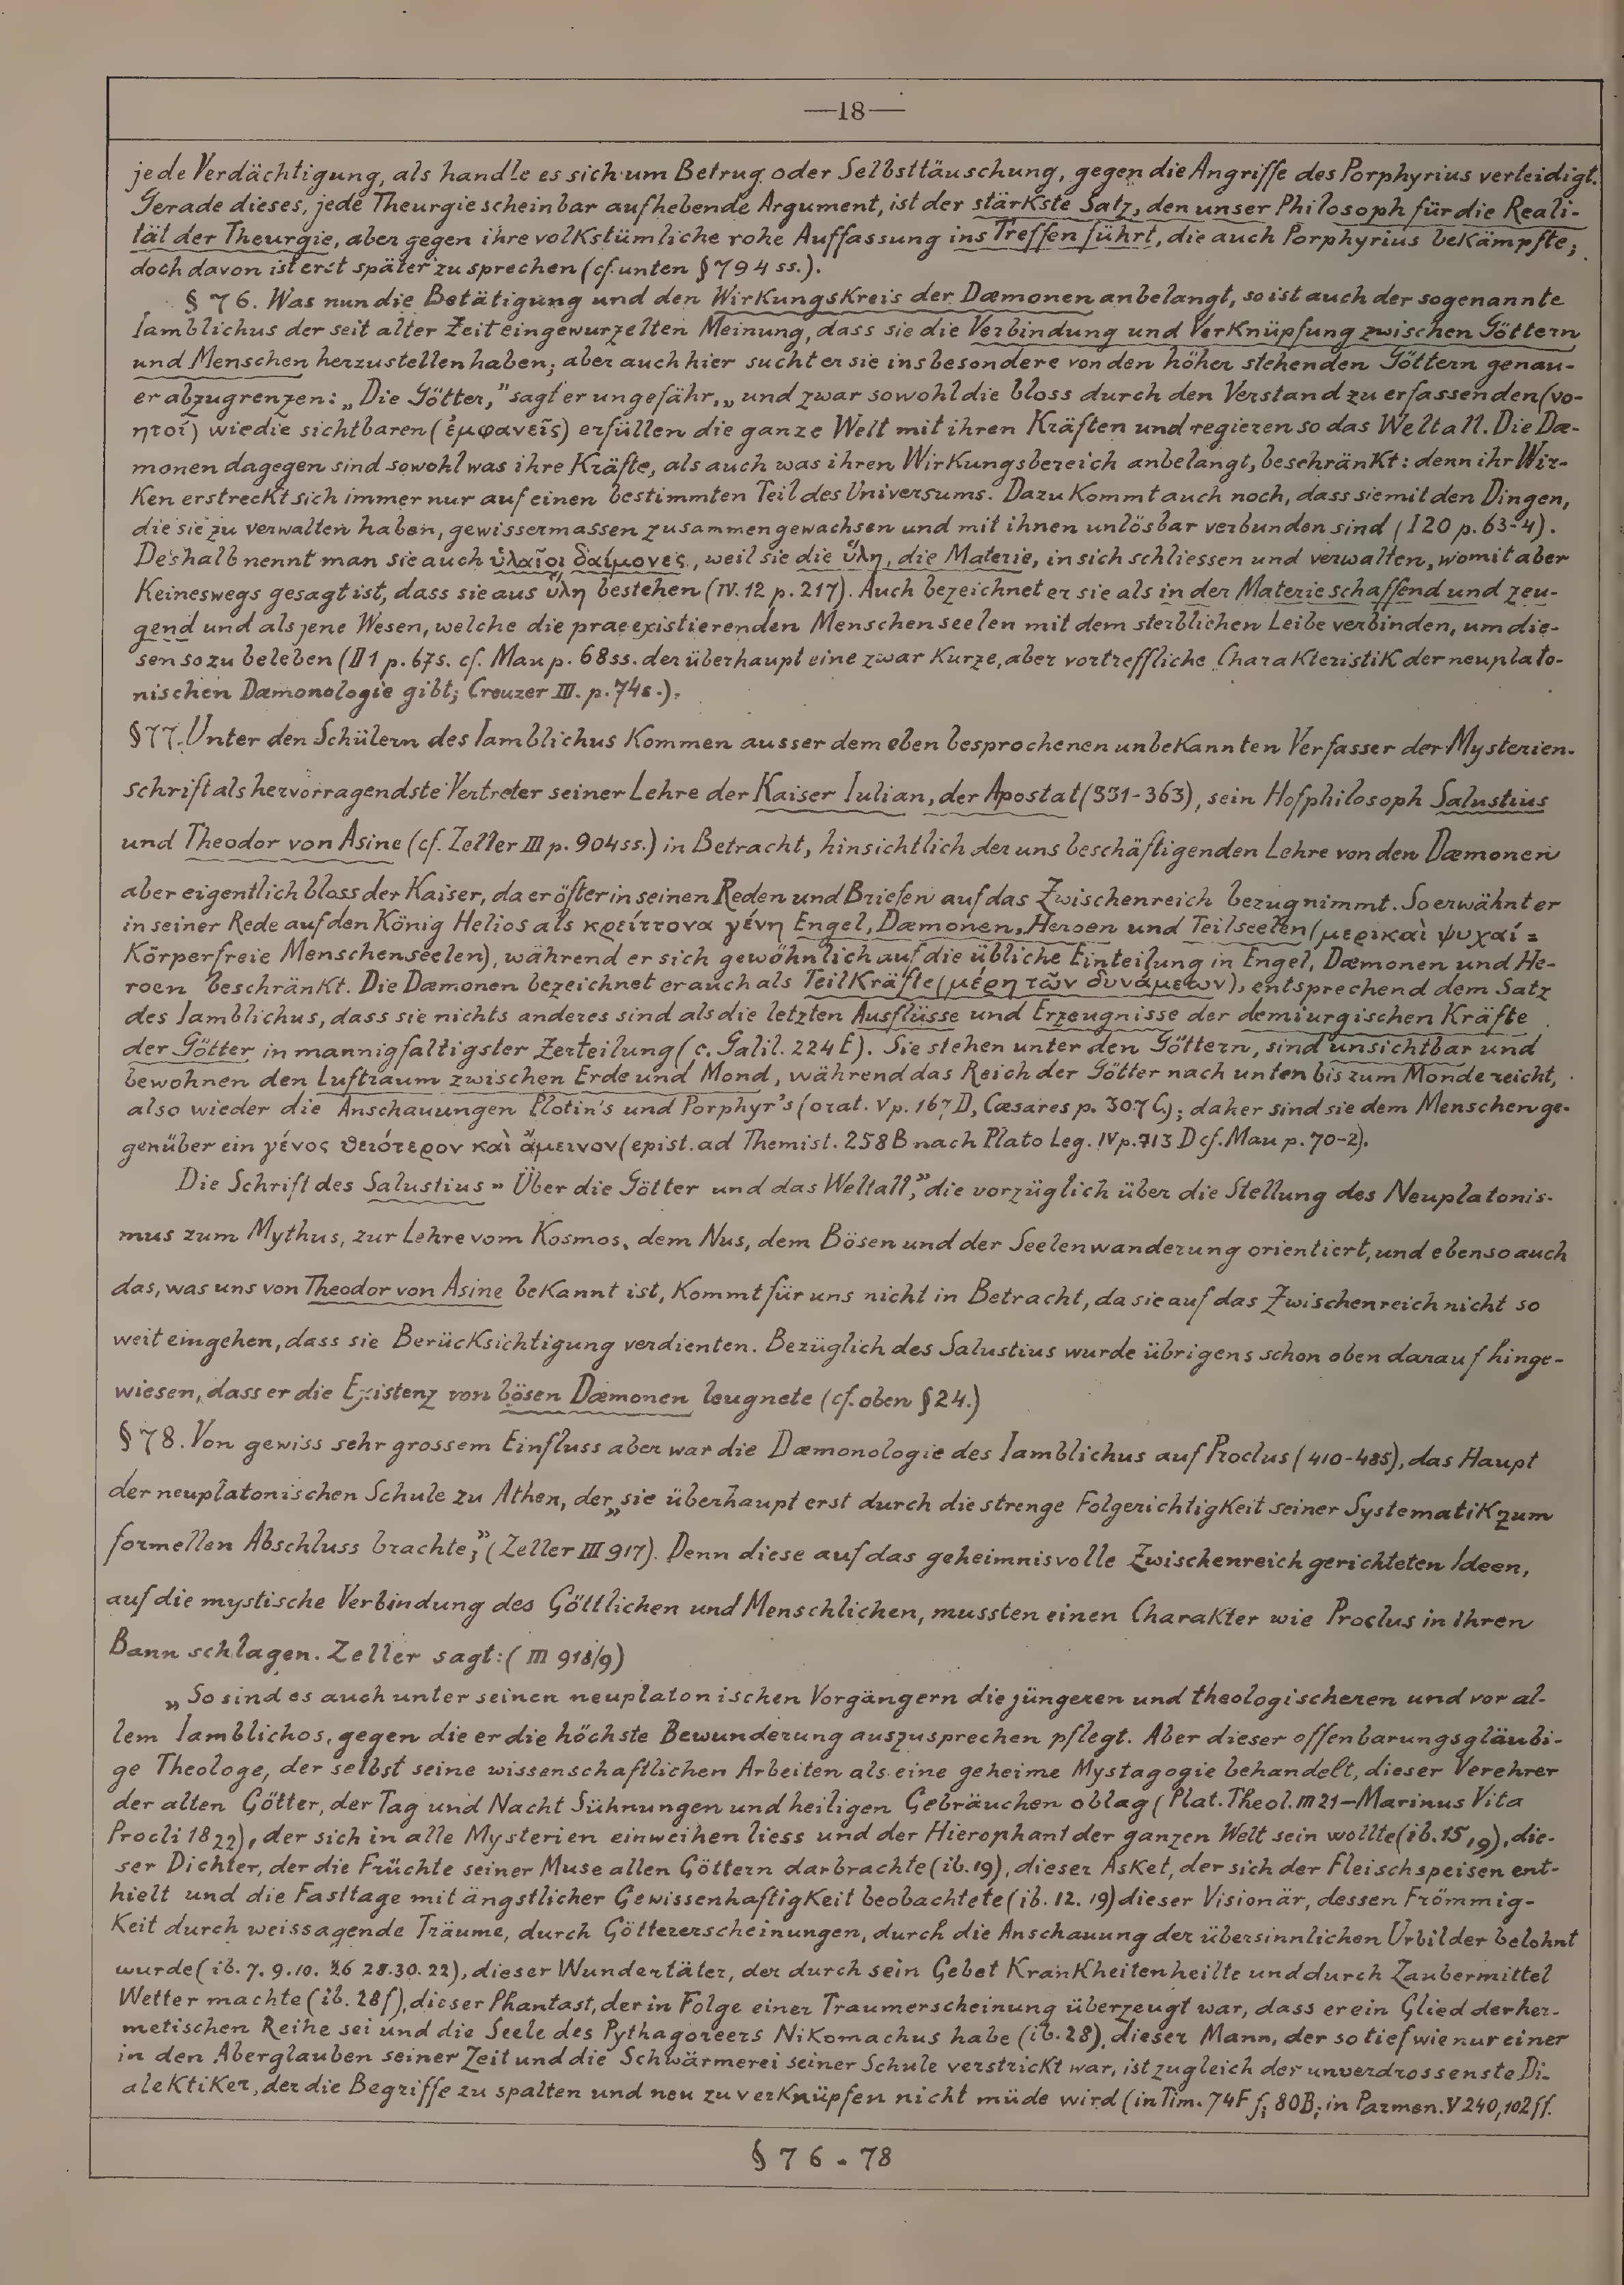 —18—
jede Verdächtigung, als handle es sich um Betrug oder Selbsttäuschung, gegen die Angriffe des Porphyrius verteidigt.
Gerade dieses, jede Theurgie scheinbar aufhebende Argument, ist der stärkste Satz, den unser Philosoph für die Reali-
tät der Theurgie, aber gegen ihre volkstümliche rohe Auffassung ins Treffen führt, die auch Porphyrius bekämpfte;
doch davon ist erst später zu sprechen (cf. unten § 794 ss.).
§ 76. Was nun die Betätigung und den Wirkungskreis der Dæmonen anbelangt, so ist auch der sogenannte
Iamblichus der seit alter Zeit eingewurzelten Meinung, dass sie die Verbindung und Verknüpfung zwischen Göttern
und Menschen herzustellen haben; aber auch hier sucht er sie insbesondere von den höher stehenden Göttern genau-
er abzugrenzen: „Die Götter," sagt er ungefähr, „und zwar sowohl die bloss durch den Verstand zu erfassenden (νο-
ητοί) wie die sichtbaren (ἐμφανεῖς) erfüllen die ganze Welt mit ihren Kräften und regieren so das Weltall. Die Dæ-
monen dagegen sind sowohl was ihre Kräfte, als auch was ihren Wirkungsbereich anbelangt, beschränkt: denn ihr Wir-
ken erstreckt sich immer nur auf einen bestimmten Teil des Universums. Dazu kommt auch noch, dass sie mit den Dingen,
die sie zu verwalten haben, gewissermassen zusammengewachsen und mit ihnen unlösbar verbunden sind (I 20 p. 63-4).
Deshalb nennt man sie auch ὑλαῖοι δαίμονες, weil sie die ὕλη, die Materie, in sich schliessen und verwalten, womit aber
keineswegs gesagt ist, dass sie aus ὕλη bestehen (IV. 12 p. 217). Auch bezeichnet er sie als in der Materie schaffend und zeu-
gend und als jene Wesen, welche die praeexistierenden Menschenseelen mit dem sterblichen Leibe verbinden, um die-
sen so zu beleben (II 1 p. 67s. cf. Mau p. 68ss. der überhaupt eine zwar kurze, aber vortreffliche Charakteristik der neuplato-
nischen Dæmonologie gibt; Creuzer III. p. 74s.).
§ 77. Unter den Schülern des Iamblichus kommen ausser dem eben besprochenen unbekannten Verfasser der Mysterien-
schrift als hervorragendste Vertreter seiner Lehre der Kaiser Iulian, der Apostat (331-363), sein Hofphilosoph Salustius
und Theodor von Asine (cf. Zeller III p. 904ss.) in Betracht, hinsichtlich der uns beschäftigenden Lehre von den Dæmonen
aber eigentlich bloss der Kaiser, da er öfter in seinen Reden und Briefen auf das Zwischenreich bezug nimmt. So erwähnt er
in seiner Rede auf den König Helios als κρείττονα γένη Engel, Dæmonen, Heroen und Teilseelen (μερικαὶ ψυχαί =
Körperfreie Menschenseelen), während er sich gewöhnlich auf die übliche Einteilung in Engel, Dæmonen und He-
roen beschränkt. Die Dæmonen bezeichnet er auch als Teilkräfte (μέρη τῶν δυνάμεων), entsprechend dem Satz
des Iamblichus, dass sie nichts anderes sind als die letzten Ausflüsse und Erzeugnisse der demiurgischen Kräfte
der Götter in mannigfaltigster Zerteilung (c. Galil. 224 E). Sie stehen unter den Göttern, sind unsichtbar und
bewohnen den Luftraum zwischen Erde und Mond, während das Reich der Götter nach unten bis zum Monde reicht,
also wieder die Anschauungen Plotin's und Porphyr's (orat. V p. 167 D, Cæsares p. 307 C.); daher sind sie dem Menschen ge-
genüber ein γένος θειότερον καὶ ἄμεινον (epist. ad Themist. 258 B nach Plato Leg. IV p. 713 D cf. Mau p. 70-2).
Die Schrift des Salustius „Über die Götter und das Weltall," die vorzüglich über die Stellung des Neuplatonis-
mus zum Mythus, zur Lehre vom Kosmos, dem Nus, dem Bösen und der Seelenwanderung orientiert, und ebenso auch
das, was uns von Theodor von Asine bekannt ist, kommt für uns nicht in Betracht, da sie auf das Zwischenreich nicht so
weit eingehen, dass sie Berücksichtigung verdienten. Bezüglich des Salustius wurde übrigens schon oben darauf hinge-
wiesen, dass er die Existenz von bösen Dæmonen leugnete (cf. oben § 24.)
§ 78. Von gewiss sehr grossem Einfluss aber war die Dæmonologie des Iamblichus auf Proclus (410-485), das Haupt
der neuplatonischen Schule zu Athen, der „sie überhaupt erst durch die strenge Folgerichtigkeit seiner Systematik zum
formellen Abschluss brachte;" (Zeller III 917). Denn diese auf das geheimnisvolle Zwischenreich gerichteten Ideen,
auf die mystische Verbindung des Göttlichen und Menschlichen, mussten einen Charakter wie Proclus in ihren
Bann schlagen. Zeller sagt: (III 918/9)
„So sind es auch unter seinen neuplatonischen Vorgängern die jüngeren und theologischeren und vor al-
lem Iamblichos, gegen die er die höchste Bewunderung auszusprechen pflegt. Aber dieser offenbarungsgläubi-
ge Theologe, der selbst seine wissenschaftlichen Arbeiten als eine geheime Mystagogie behandelt, dieser Verehrer
der alten Götter, der Tag und Nacht Sühnungen und heiligen Gebräuchen oblag (Plat. Theol. III 21—Marinus Vita
Procli 18 22), der sich in alle Mysterien einweihen liess und der Hierophant der ganzen Welt sein wollte (ib. 15, 19), die-
ser Dichter, der die Früchte seiner Muse allen Göttern darbrachte (ib. 19), dieser Asket, der sich der Fleischspeisen ent-
hielt und die Fasttage mit ängstlicher Gewissenhaftigkeit beobachtete (ib. 12. 19) dieser Visionär, dessen Frömmig-
keit durch weissagende Träume, durch Göttererscheinungen, durch die Anschauung der übersinnlichen Urbilder belohnt
wurde (ib. 7. 9. 10. 26 28. 30. 22), dieser Wundertäter, der durch sein Gebet Krankheiten heilte und durch Zaubermittel
Wetter machte (ib. 28 f), dieser Phantast, der in Folge einer Traumerscheinung überzeugt war, dass er ein Glied der her-
metischen Reihe sei und die Seele des Pythagoreers Nikomachus habe (ib. 28), dieser Mann, der so tief wie nur einer
in den Aberglauben seiner Zeit und die Schwärmerei seiner Schule verstrickt war, ist zugleich der unverdrossenste Di-
alektiker, der die Begriffe zu spalten und neu zu verknüpfen nicht müde wird (in Tim. 74 F f; 80 B; in Parmen. V 240, 102 ff.
§ 76 - 78